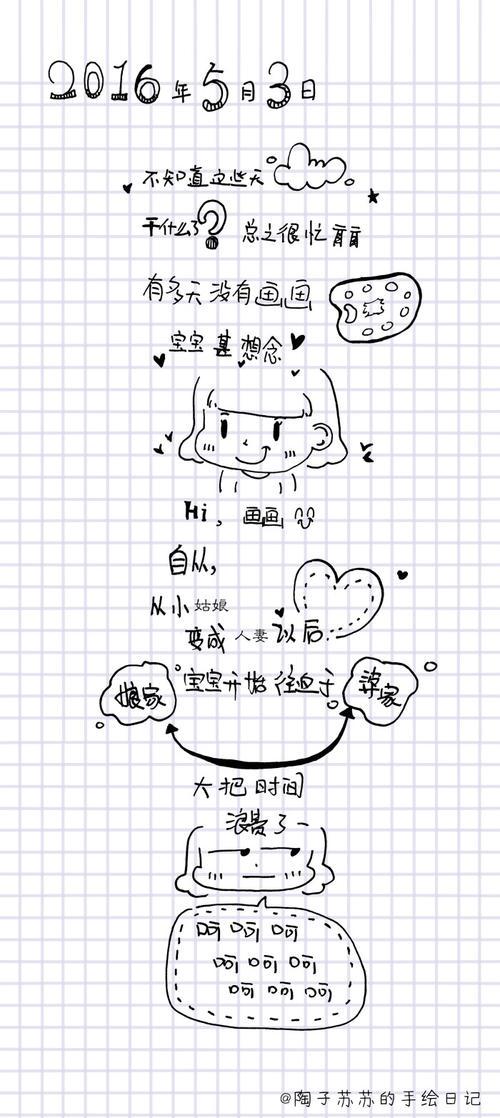 2016年5月3日
不知道这些天
干什么了? 总之很忙盲盲
有多天没有画画
宝宝甚想念
Hi，画画
自从，
从小姑娘
变成人妻以后.
娘家 宝宝开始往迂于 婆家
大把时间
浪费了一
呵呵呵
呵呵呵
呵呵呵
@陶子苏苏的手绘日记